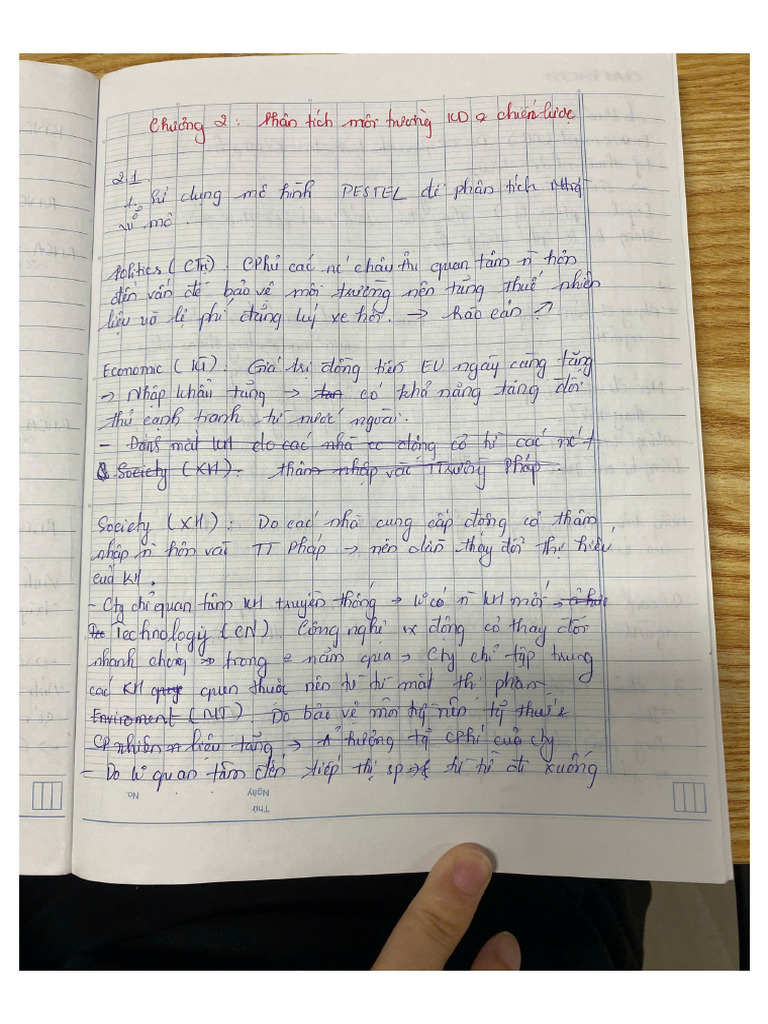 Chương 2: Phân tích môi trường KD & chiến lược
2.1.
1. Sử dụng mô hình PESTEL để phân tích
vĩ mô.
Politics (CTrị). CPhủ các nc châu Âu quan tâm n hơn
đến vấn đề bảo vệ môi trường nên tăng thuế nhiên
liệu và lệ phí đăng ký xe hơi. → Rào cản ↗
Economic (KT). Giá trị đồng tiền EU ngày càng tăng
→ Nhập khẩu tăng → có khả năng tăng đối
thủ cạnh tranh từ nước ngoài.
- Đang mất KH do các nhà cc động cơ từ các nc
Society (XH). thâm nhập vào TTrường Pháp.
Society (XH.): Do các nhà cung cấp động cơ thâm
nhập n hơn vào TT Pháp → nên dần thay đổi thị hiếu
của KH.
- Cty chỉ quan tâm KH truyền thống → K có n KH mới
Technology (CN). Công nghệ sx động cơ thay đổi
nhanh chóng → trong 2 năm qua → Cty chỉ tập trung
các KH quen thuộc nên từ từ mất thị phần
Enviroment (MT). Do bảo vệ môi tg nên tg thuế &
CP nhiên liệu tăng → Ả hưởng tg cphí của cty
- Do K quan tâm đến tiếp thị sp → từ từ đi xuống
No.
Ngày
Thứ